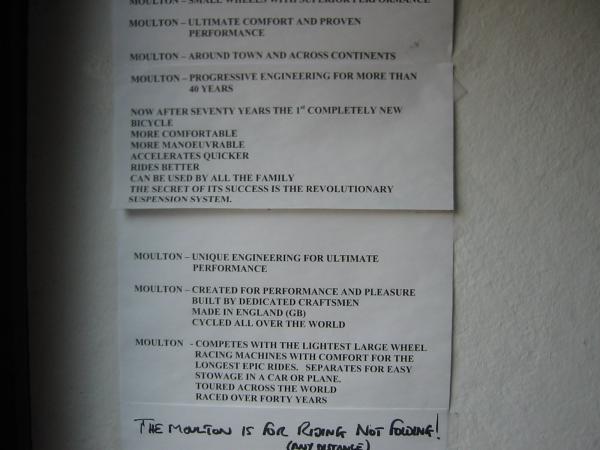 MOULTON – SMALL WHEELS WITH SUPERIOR PERFORMANCE
MOULTON – ULTIMATE COMFORT AND PROVEN
PERFORMANCE
MOULTON – AROUND TOWN AND ACROSS CONTINENTS
MOULTON – PROGRESSIVE ENGINEERING FOR MORE THAN
40 YEARS
NOW AFTER SEVENTY YEARS THE 1st COMPLETELY NEW
BICYCLE
MORE COMFORTABLE
MORE MANOEUVRABLE
ACCELERATES QUICKER
RIDES BETTER
CAN BE USED BY ALL THE FAMILY
THE SECRET OF ITS SUCCESS IS THE REVOLUTIONARY
SUSPENSION SYSTEM.
MOULTON – UNIQUE ENGINEERING FOR ULTIMATE
PERFORMANCE
MOULTON – CREATED FOR PERFORMANCE AND PLEASURE
BUILT BY DEDICATED CRAFTSMEN
MADE IN ENGLAND (GB)
CYCLED ALL OVER THE WORLD
MOULTON - COMPETES WITH THE LIGHTEST LARGE WHEEL
RACING MACHINES WITH COMFORT FOR THE
LONGEST EPIC RIDES. SEPARATES FOR EASY
STOWAGE IN A CAR OR PLANE.
TOURED ACROSS THE WORLD
RACED OVER FORTY YEARS
THE MOULTON IS FOR RIDING NOT FOLDING!
(ANY DISTANCE)